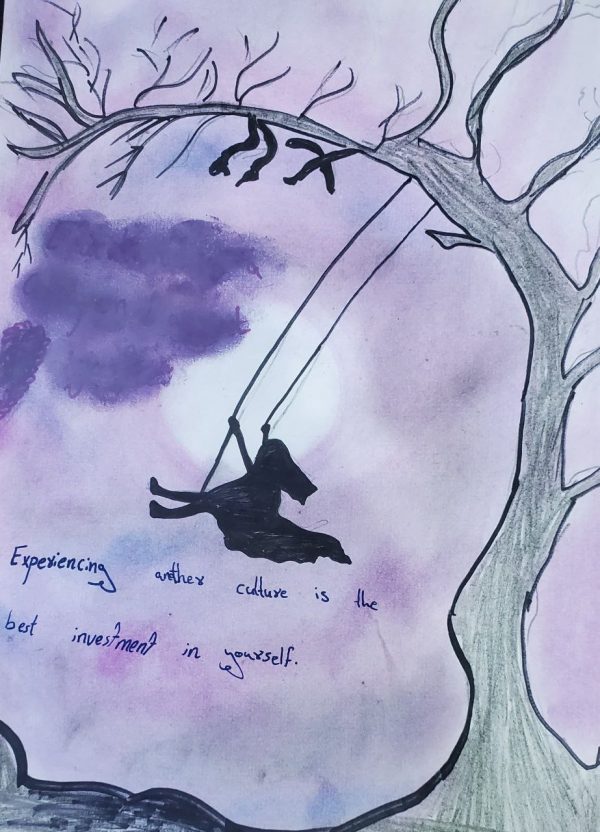 Experiencing another culture is the
best investment in yourself.